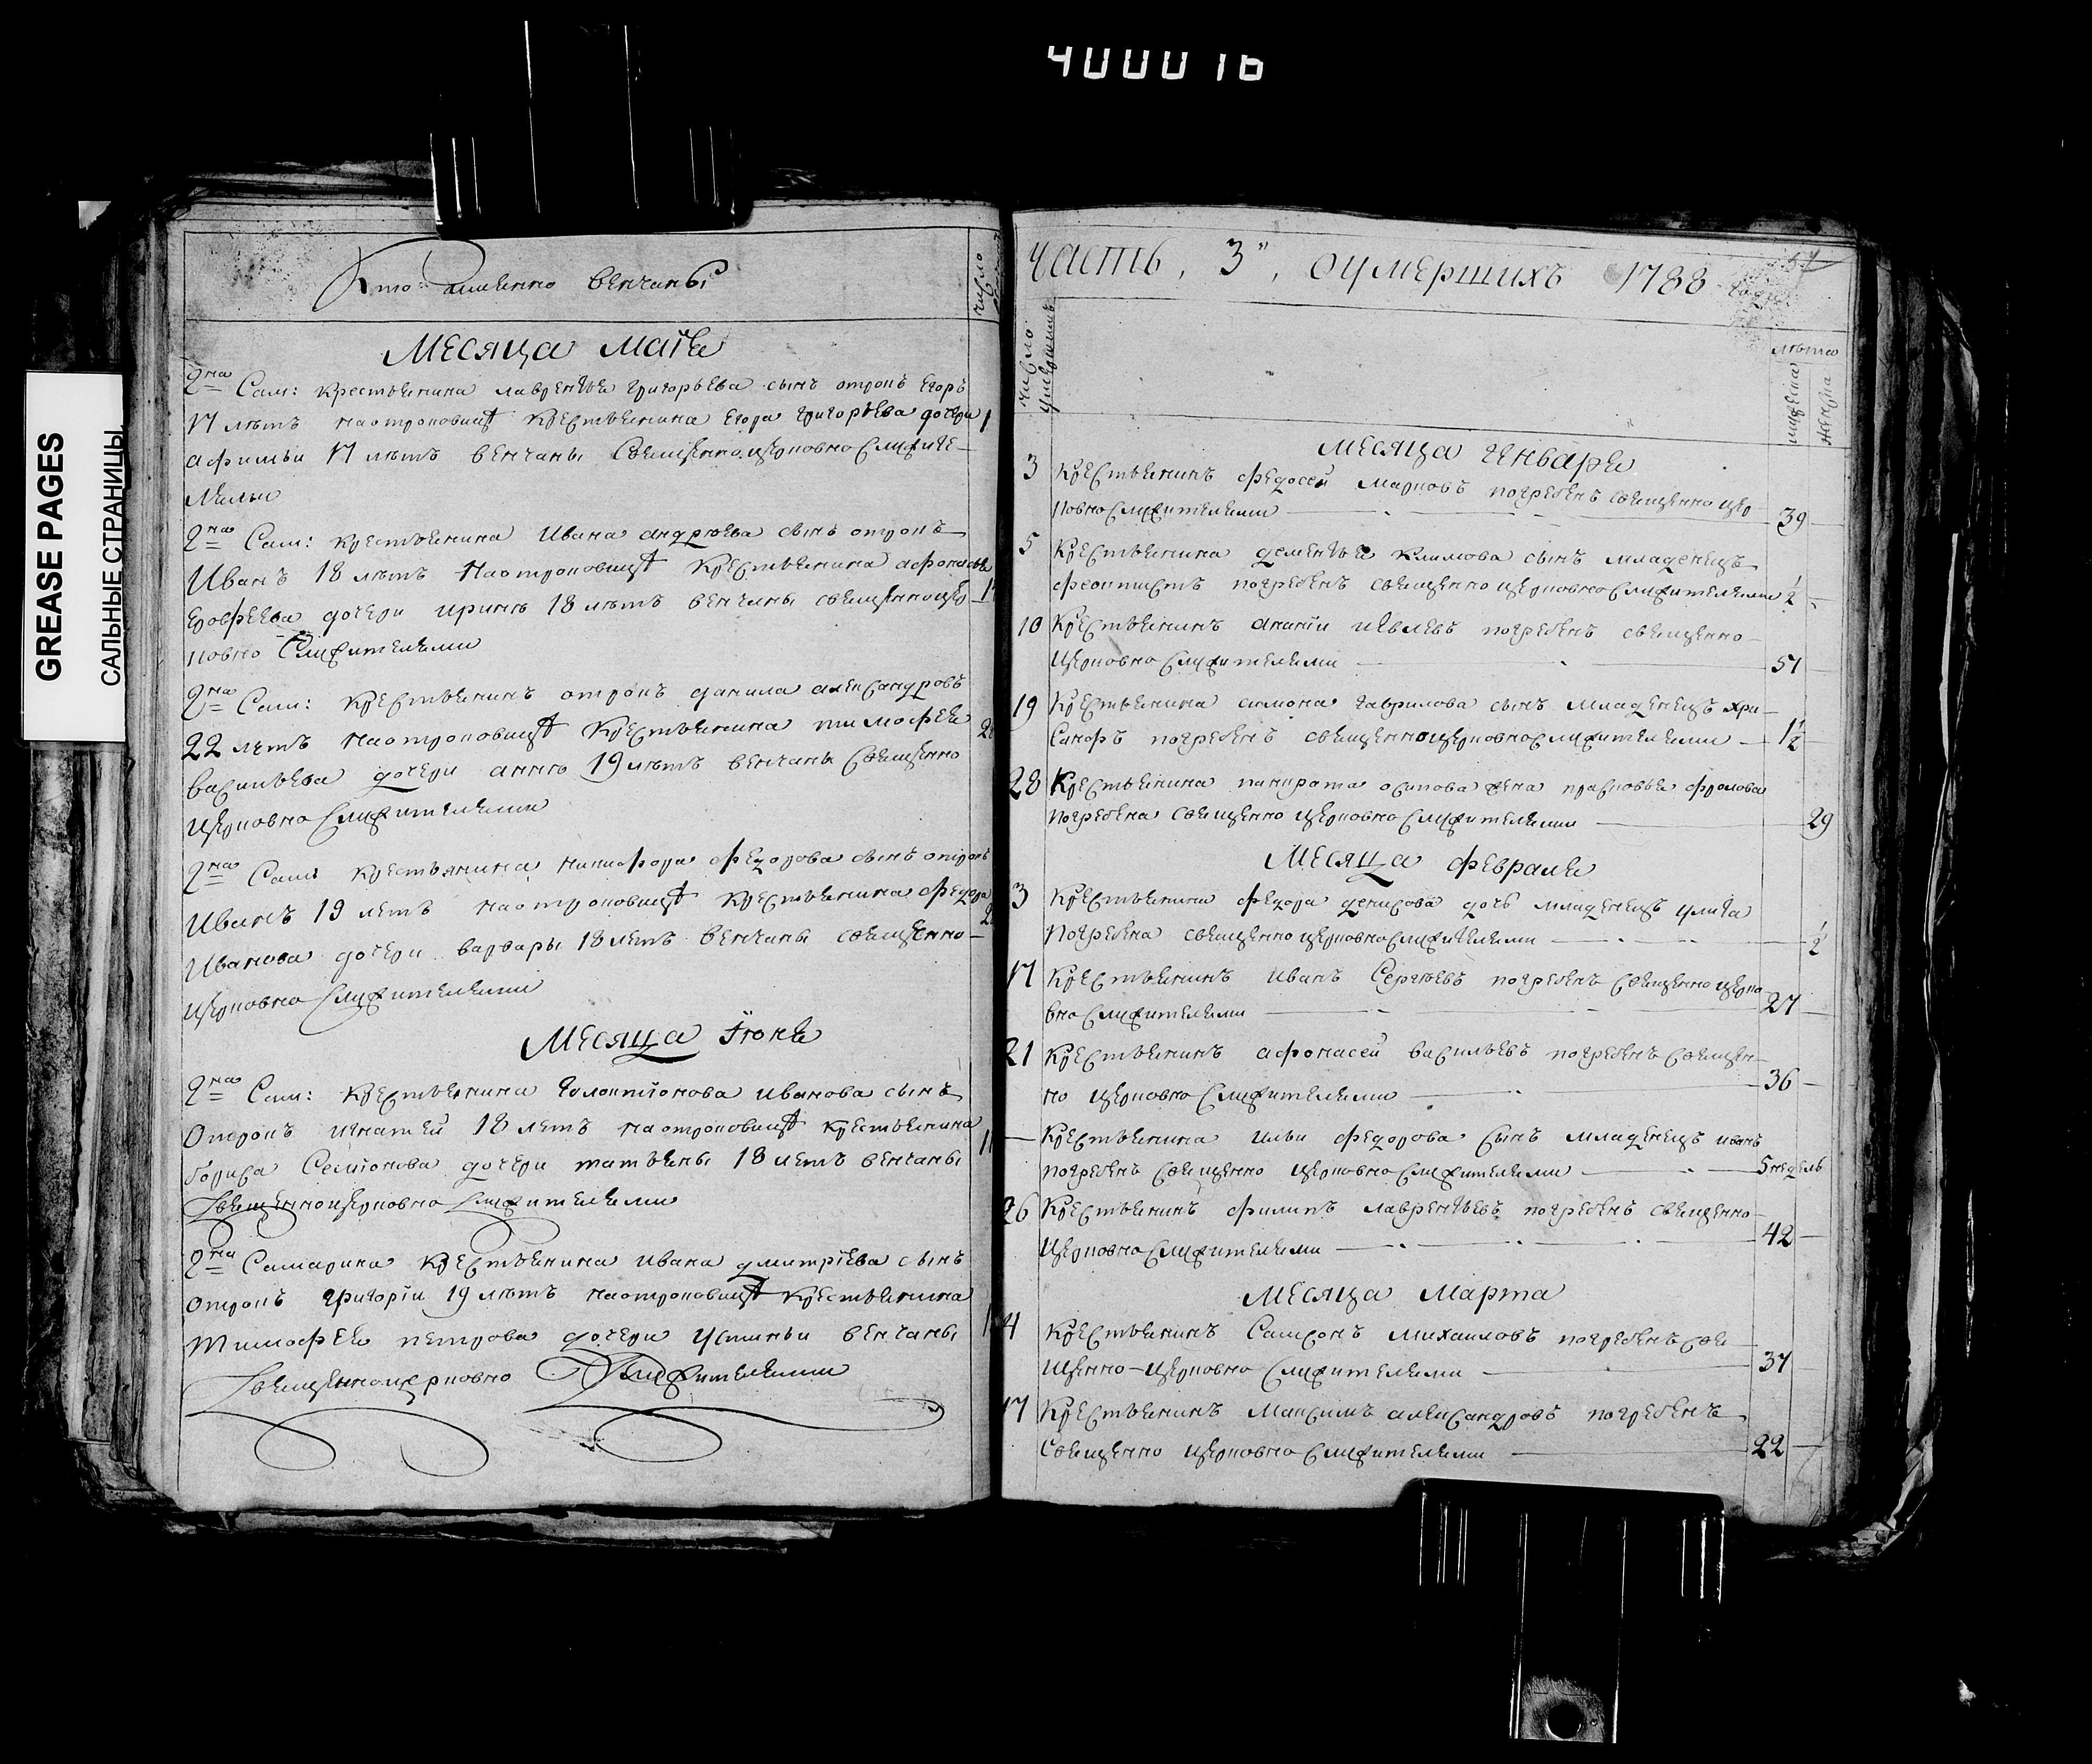 400016
GREASE PAGES
САЛЬНЫЕ СТРАНИЦЫ
Кто имянно венчаны
число
Месяца маія
2на Сам: крестьянина лаврентья григорьева сынъ отрокъ Егоръ
17 лѣтъ наотроковицѣ крестьянина Егора григорьева дочери
афимьи 17 лѣтъ венчаны Священноцерковнослужите-
лями
2на Сам: крестьянина Ивана андрѣева сынъ отрокъ
Иванъ 18 лѣтъ наотроковицѣ крестьянина афонасья
Ерофѣева дочери ириню 18 лѣтъ венчаны священноцер
ковно Служителями
2на Сам: крестьянинъ отрокъ данила александровъ
22 летъ наотроковицѣ крестьянина тимофея
васильева дочери анню 19 лѣтъ венчаны Священно
церковно Служителями
2на Сам: крестьянина никифора федорова сынъ отрокъ
Иванъ 19 летъ наотроковицѣ крестьянина федора
Иванова дочери варвары 18 летъ венчаны священно-
церковно Служителями
Месяца Іюня
2на Сам: крестьянина Галактіонова иванова сынъ
Отрокъ игнатей 18 летъ наотроковицѣ крестьянина
бориса Семіонова дочери татьяны 18 летъ венчаны
Священноцерковно Служителями
2на Самарина крестьянина ивана дмитріева сынъ
отрокъ григоріи 19 лѣтъ наотроковицѣ крестьянина
тимофея петрова дочери устиньи венчаны
Священноцерковно Служителями
часть, 3", оумершихъ 1788 года
число умершимъ
лѣта
мужеска
женска
Месяца генваря
3 крестьянинъ федосей марковъ погребенъ священно цер
ковно Служителями 39
5 крестьянина дементья климова сынъ младенецъ
феоктистъ погребенъ священно церковно Служителями 1/2
10 крестьянинъ ананіи иевлевъ погребенъ священно-
церковно Служителями 51
19 крестьянина симона гаврилова сынъ младенецъ хри-
санфъ погребенъ священноцерковно Служителями 1 1/2
28 крестьянина панкрата осипова жена прасковья фролова
погребена священно церковно Служителями 29
Месяца февраля
3 крестьянина федора денисова дочь младенецъ улита
погребена священно церковно Служителями 1/2
17 крестьянинъ иванъ Сергѣевъ погребенъ священно церко
вно Служителями 27
21 крестьянинъ афонасей васильевъ погребенъ священ-
но церковно Служителями 36
— крестьянина ильи федорова Сынъ младенецъ иванъ
погребенъ священно церковно Служителями 5 недѣль
26 крестьянинъ филипъ лаврентьевъ погребенъ священно-
церковно Служителями 42
Месяца Марта
4 крестьянинъ Самсонъ михаиловъ погребенъ свя
щенно-церковно Служителями 37
17 крестьянинъ максимъ александровъ погребенъ
Священно церковно Служителями 22